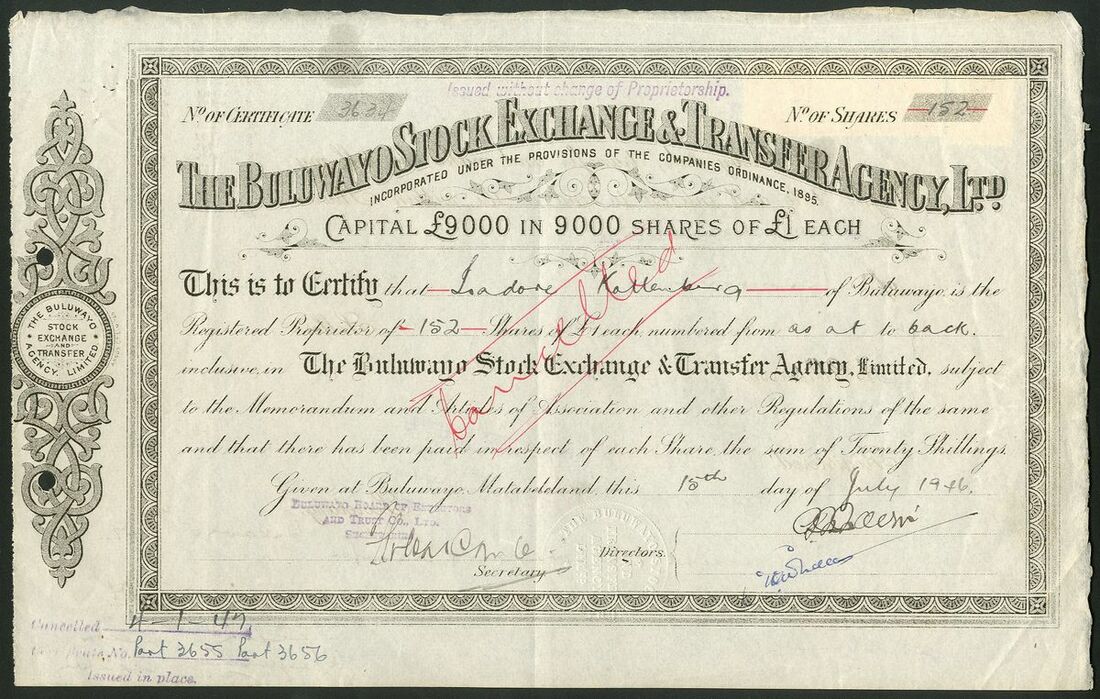 Issued without change of Proprietorship.
No. OF CERTIFICATE 3634
No. OF SHARES 152
THE BULUWAYO STOCK EXCHANGE & TRANSFER AGENCY, LTD
INCORPORATED UNDER THE PROVISIONS OF THE COMPANIES ORDINANCE, 1895.
CAPITAL £9000 IN 9000 SHARES OF £1 EACH
This is to Certify that Isadore Kollenburg of Buluwayo is the
Registered Proprietor of 152 Shares of £1 each numbered from as at to back.
inclusive, in The Buluwayo Stock Exchange & Transfer Agency, Limited, subject
to the Memorandum and Articles of Association and other Regulations of the same
and that there has been paid in respect of each Share the sum of Twenty Shillings.
Cancelled
Given at Buluwayo, Matabeleland, this 15th day of July 1946.
BULUWAYO BOARD OF EXECUTORS
AND TRUST CO., LTD.
Directors.
Secretary
THE BULUWAYO
STOCK
EXCHANGE
AND
TRANSFER
AGENCY, LIMITED
Cancelled 4-1-47
No. Part 3655 Part 3656
Issued in place.